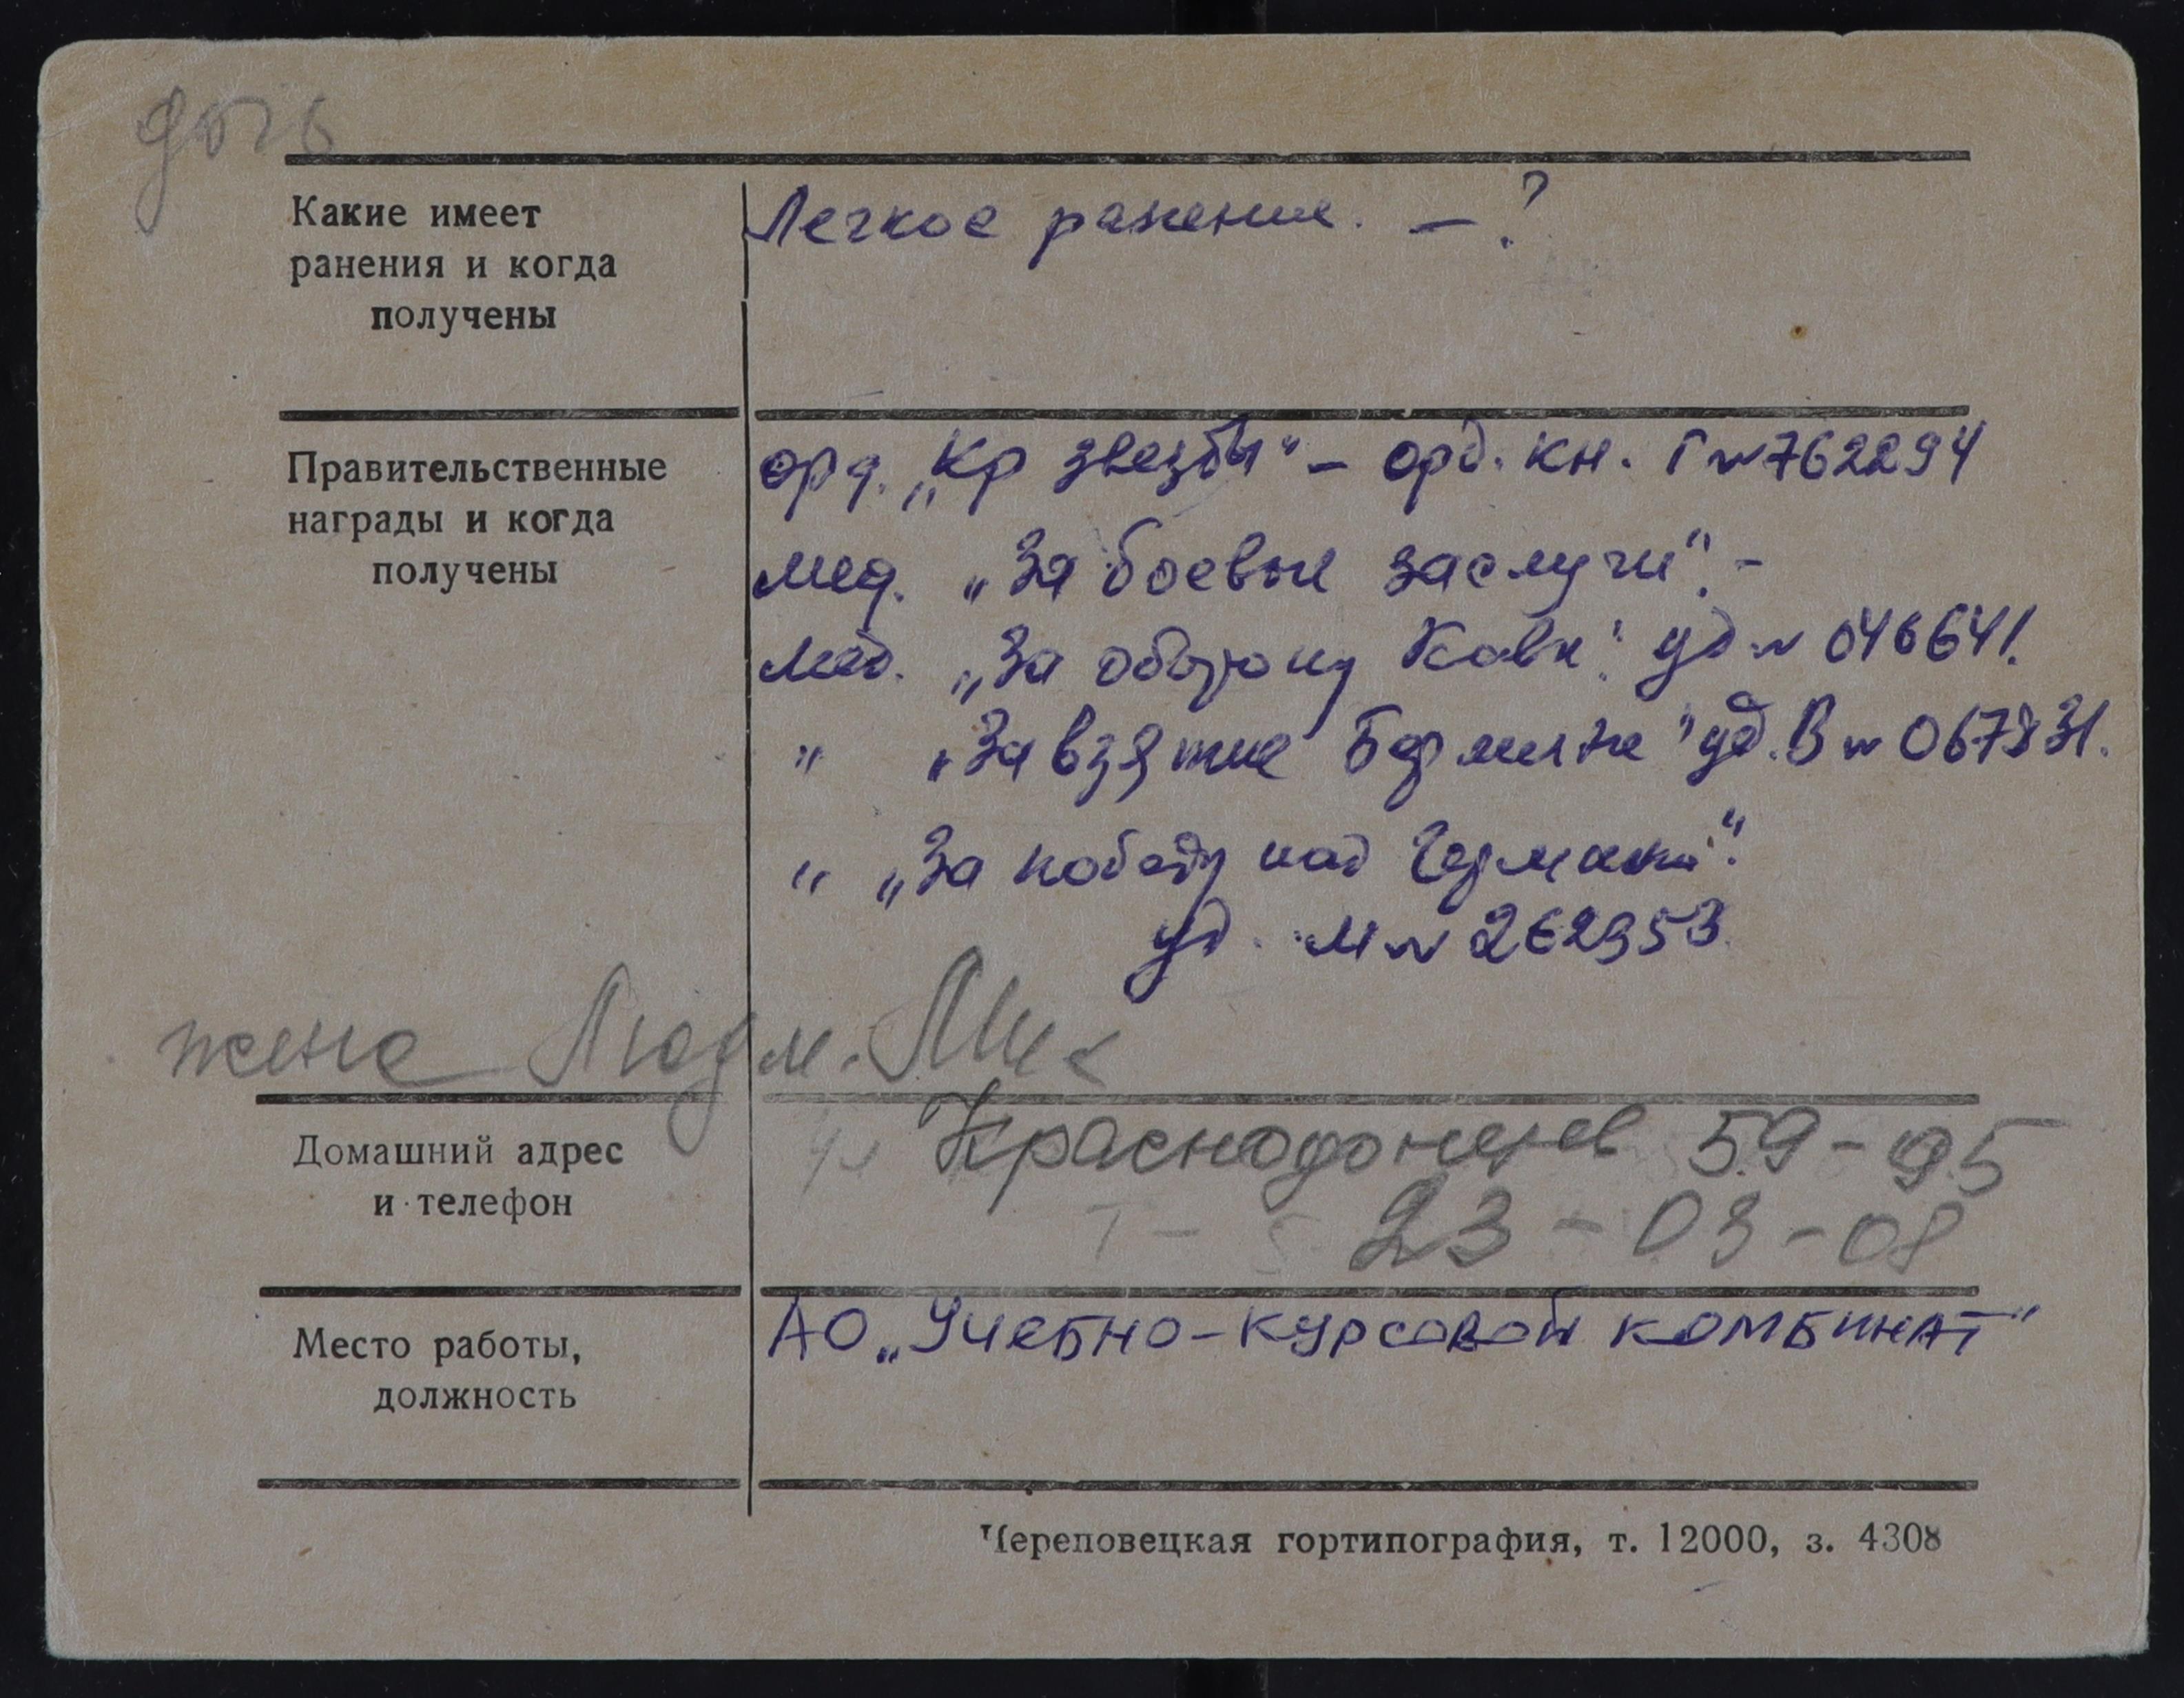 дочь
Какие имеет
ранения и когда
получены
Легкое ранение. – ?
Правительственные
награды и когда
получены
орд. „Кр звезды“ – орд. кн. Г № 762294
мед. „За боевые заслуги“. –
мед. „За оборону Кавк“. уд № 046641.
" „За взятие Берлина“ уд. В № 067831.
" „За победу над Германи“.
уд. М № 262953
жена Людм. Мих
Домашний адрес
и телефон
ул Краснодонцев 59-95
Т- 23-03-08
Место работы,
должность
АО „Учебно-курсовой комбинат“
Череповецкая гортипография, т. 12000, з. 4308